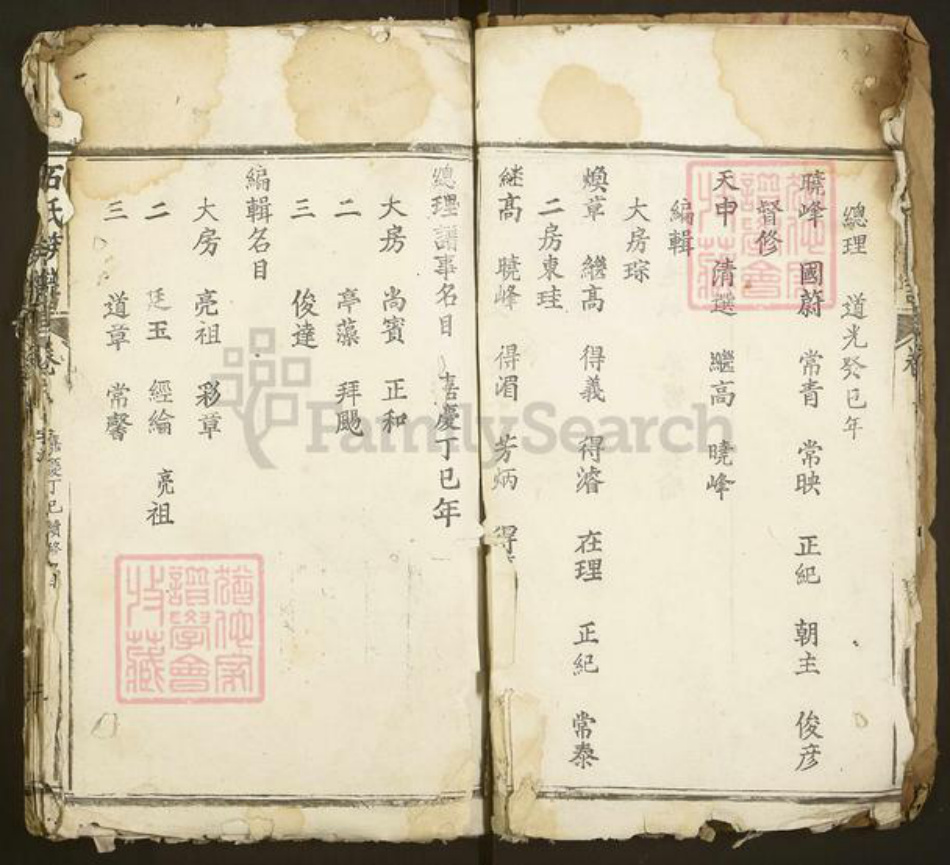 總理 道光癸巳年
曉峰 國蔚 常青 常映 正紀 朝主 俊彦
督修
天申 清選 繼高 曉峰
編輯
大房琮
煥章 繼髙 得義 得濬 在理 正紀 常泰
二房東珪
継髙 曉峰 得湄 芳炳 得
總理譜事名目 嘉慶丁巳年
大房 尚賓 正和
二 亭藻 拜颺
三 俊達
編輯名目
大房 亮祖 彩章
二 廷玉 經綸 亮祖
三 道章 常馨
石氏
嘉慶丁巳續修名目
猶他家譜學會收藏
猶他家譜學會收藏
FamilySearch